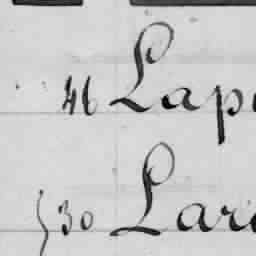 46 Lap
530 Lar